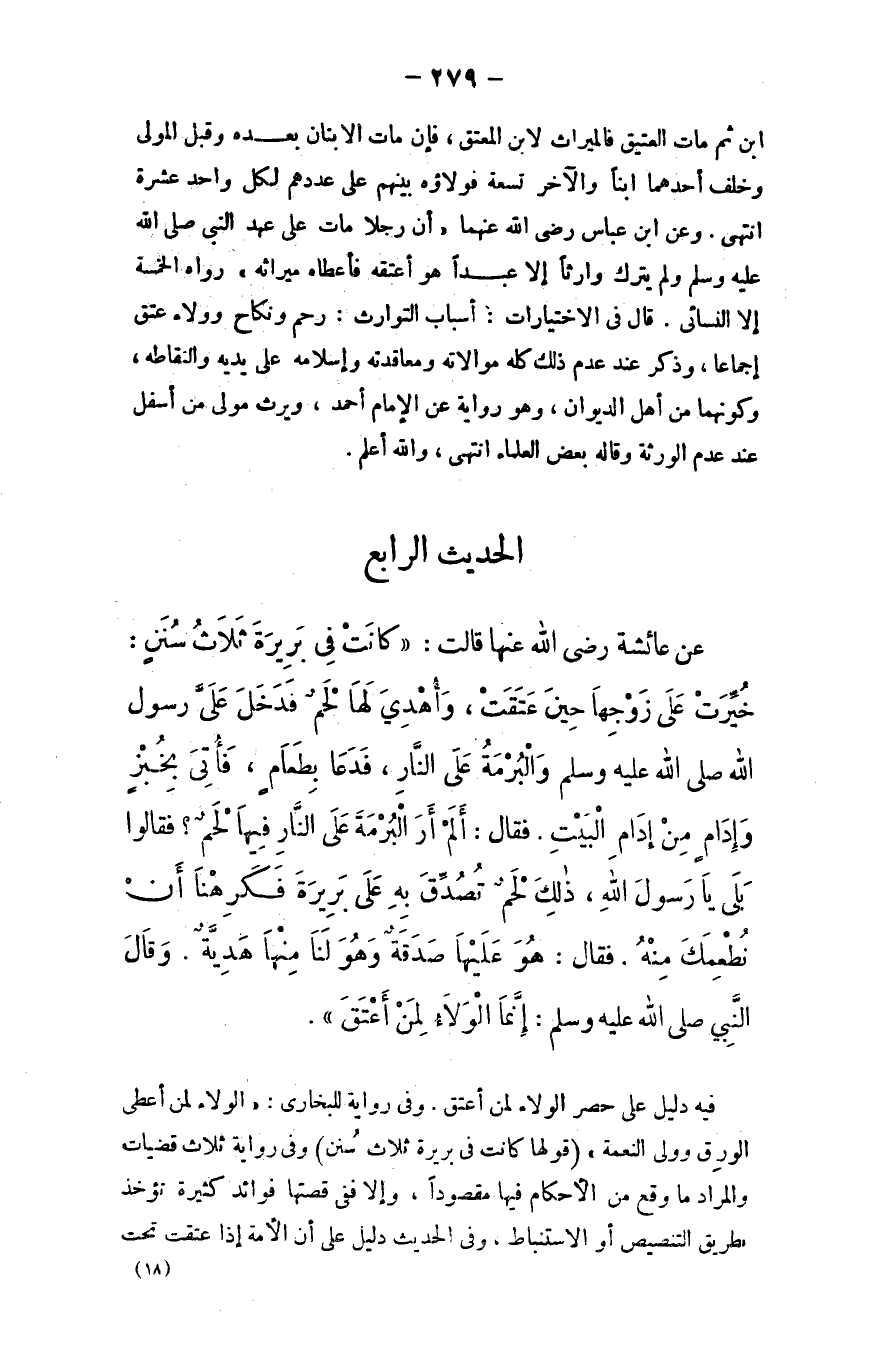 - ٢٧٩ -
ابن ثم مات العتيق فالميراث لابن المعتق ، فإن مات الابنان بعـــده وقبل المولى
وخلف أحدهما ابناً والآخر تسعة فولاؤه بينهم على عددهم لكل واحد عشرة
انتهى . وعن ابن عباس رضى الله عنهما « أن رجلا مات على عهد النبى صلى الله
عليه وسلم ولم يترك وارثاً إلا عبـــداً هو أعتقه فأعطاه ميراثه » رواه الخمسة
إلا النسائى . قال فى الاختيارات : أسباب التوارث : رحم ونكاح وولاء عتق
إجماعا ، وذكر عند عدم ذلك كله موالاته ومعاقدته وإسلامه على يديه والتقاطه ،
وكونهما من أهل الديوان ، وهو رواية عن الإمام أحمد ، ويرث مولى من أسفل
عند عدم الورثة وقاله بعض العلماء انتهى ، والله أعلم .
الحديث الرابع
عن عائشة رضى الله عنها قالت : « كَانَتْ فِى بَرِيرَةَ ثَلَاثُ سُنَنٍ :
خُيِّرَتْ عَلَى زَوْجِهاَ حِينَ عَتَقَتْ ، وَأُهْدِىَ لَهَا لَحْمٌ فَدَخَلَ عَلَىَّ رسول
الله صلى الله عليه وسلم وَالْبُرْمَةُ عَلَى النَّارِ ، فَدَعَا بِطَعَامٍ ، فَأُتِىَ بِخُبْزٍ
وَإِدَامٍ مِنْ إِدَامِ الْبَيْتِ . فقال : أَلَمْ أَرَ الْبُرْمَةَ عَلَى النَّارِ فِيهاَ لَحْمٌ ؟ فقالوا
بَلَى ياَ رَسولَ اللهِ ، ذٰلِكَ لَحْمٌ تُصُدِّقَ بِهِ عَلَى بَرِيرَةَ فَـكَرِهْنَا أَنْ
نُطْعِمَكَ مِنْهُ . فقال : هُوَ عَلَيْهَا صَدَقَةٌ وَهُوَ لَنَا مِنْهَا هَدِيَّةٌ . وَقَالَ
النَّبِي صلى الله عليه وسلم : إِنَّمَا الْوَلاَءِ لِمَنْ أَعْتَقَ » .
فيه دليل على حصر الولاء لمن أعتق . وفى رواية للبخارى : « الولاء لمن أعطى
الورق وولى النعمة » (قولها كانت فى بريرة ثلاث سُنن) وفى رواية ثلاث قضيات
والمراد ما وقع من الأحكام فيها مقصوداً ، وإلا ففى قصتها فوائد كثيرة تؤخذ
بطريق التنصيص أو الاستنباط ، وفى الحديث دليل على أن الأمة إذا عتقت تحت
(١٨)